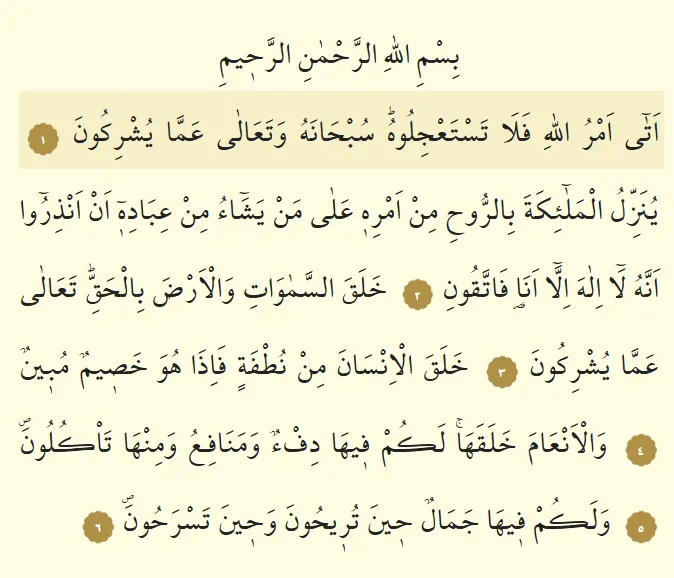 بِسْمِ اللهِ الرَّحْمٰنِ الرَّح۪يمِ
اَتٰٓى اَمْرُ اللهِ فَلَا تَسْتَعْجِلُوهُۜ سُبْحَانَهُ وَتَعَالٰى عَمَّا يُشْرِكُونَ ١
يُنَزِّلُ الْمَلٰٓئِكَةَ بِالرُّوحِ مِنْ اَمْرِه۪ عَلٰى مَنْ يَشَٓاءُ مِنْ عِبَادِه۪ٓ اَنْ اَنْذِرُٓوا
اَنَّهُ لَٓا اِلٰهَ اِلَّٓا اَنَا۬ فَاتَّقُونِ ٢ خَلَقَ السَّمٰوَاتِ وَالْاَرْضَ بِالْحَقِّۜ تَعَالٰى
عَمَّا يُشْرِكُونَ ٣ خَلَقَ الْاِنْسَانَ مِنْ نُطْفَةٍ فَاِذَا هُوَ خَص۪يمٌ مُب۪ينٌ
٤ وَالْاَنْعَامَ خَلَقَهَاۚ لَكُمْ ف۪يهَا دِفْءٌ وَمَنَافِعُ وَمِنْهَا تَأْكُلُونَۖ
٥ وَلَكُمْ ف۪يهَا جَمَالٌ ح۪ينَ تُر۪يحُونَ وَح۪ينَ تَسْرَحُونَۖ ٦